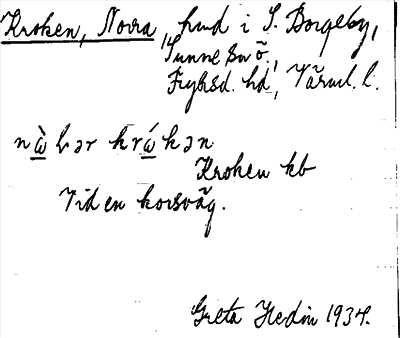 Kroken, Norra, hmd i S. Borgeby,
Sunne sn ö.,
Fryksd. hd, Värml. l.
nὼ̲ɫər krώ̲kən
Kroken kb
Vid en korsväg.
Greta Hedin 1934.